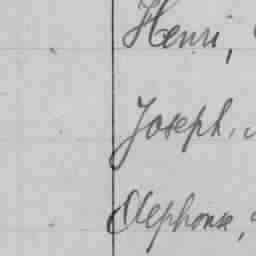 Henri,
Joseph,
Alphonse,